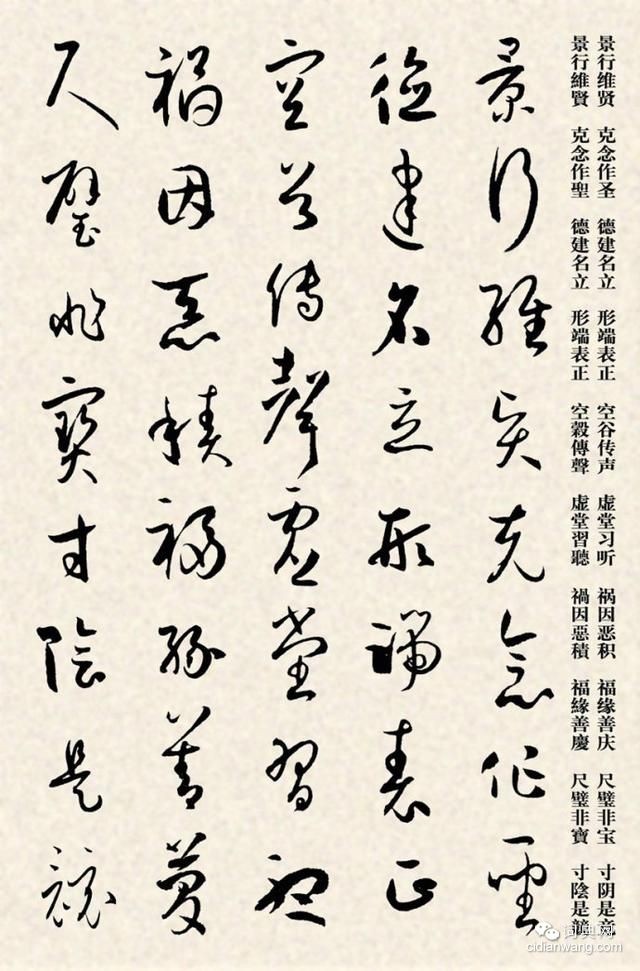 景行维贤 克念作圣 德建名立 形端表正 空谷传声 虚堂习听 祸因恶积 福缘善庆 尺璧非宝 寸阴是竞
景行維賢 克念作聖 德建名立 形端表正 空穀傳聲 虛堂習聽 禍因惡積 福緣善慶 尺璧非寶 寸陰是競
景行維賢克念作聖
德建名立形端表正
空谷傳聲虛堂習聽
禍因惡積福緣善慶
尺璧非寶寸陰是競
词典网
cidianwang.com